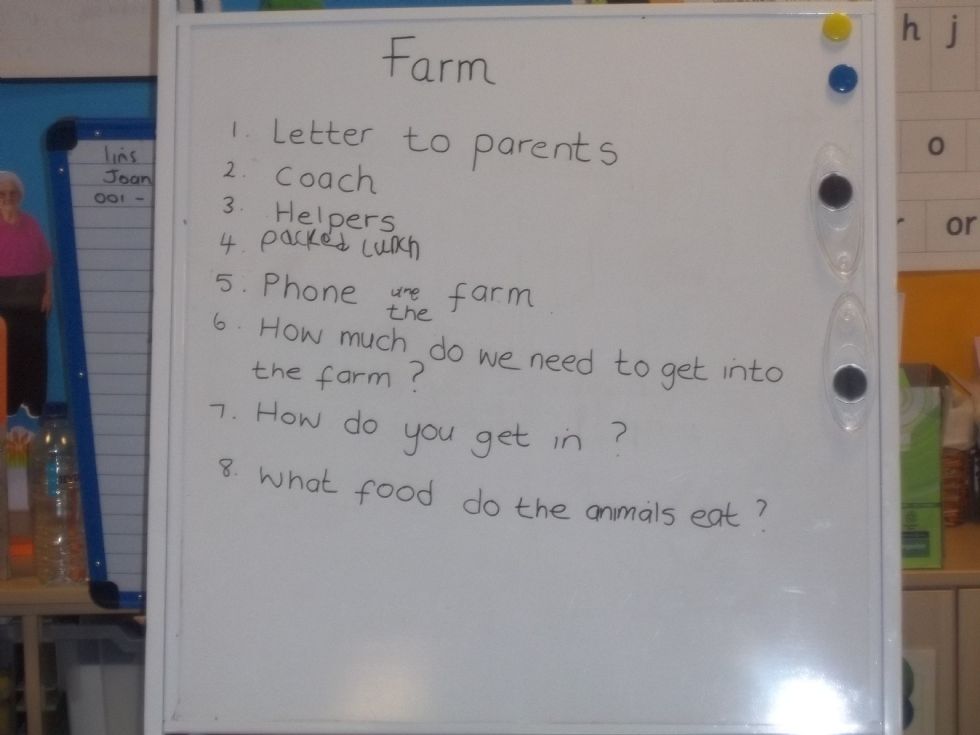 Farm
1. Letter to parents
2. Coach
3. Helpers
4. packed lunch
5. Phone the farm
6. How much do we need to get into
the farm ?
7. How do you get in ?
8. What food do the animals eat ?
Joan
001 -
h j
o
or